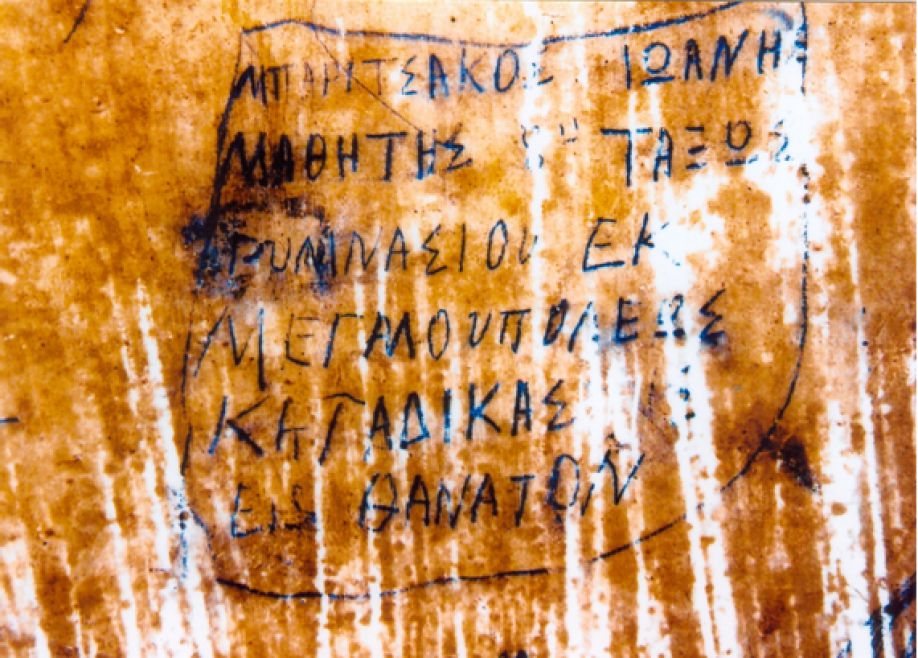 ΜΠΑΡΙΤΣΑΚΟΣ ΙΩΑΝΗΣ
ΜΑΘΗΤΗΣ ΤΑΞΕΩΣ
ΓΥΜΝΑΣΙΟΥ ΕΚ
ΜΕΓΑΛΟΥΠΟΛΕΩΣ
ΚΑΤΑΔΙΚΑΣ
ΕΙΣ ΘΑΝΑΤΟΝ